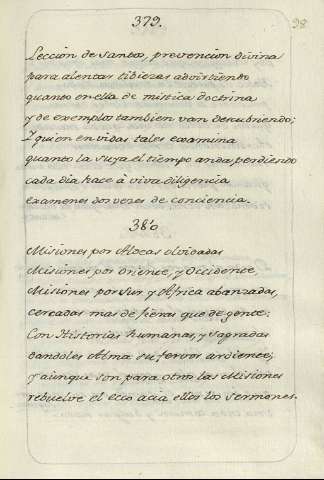 379.
98
Leccion de Santos, prevencion divina
para alentar tibiezas advirtiendo
quanto en ella de mistica doctrina
y de exemplos tambien van descubriendo;
Y quien en vidas tales examina
quanto la suya el tiempo anda perdiendo
cada dia hace à viva diligencia
examenes dos veces de conciencia.
380
Misiones por Alocas olvidadas
Misiones por oriente, y Occidente,
Misiones por Sur y Africa abanzadas,
cercadas mas de fieras que de gente:
Con Historias humanas, y Sagradas
dandoles Alma su fervor ardiente;
y aunque son para otros las Misiones
rebuelve el ecco acia ellos los sermones.